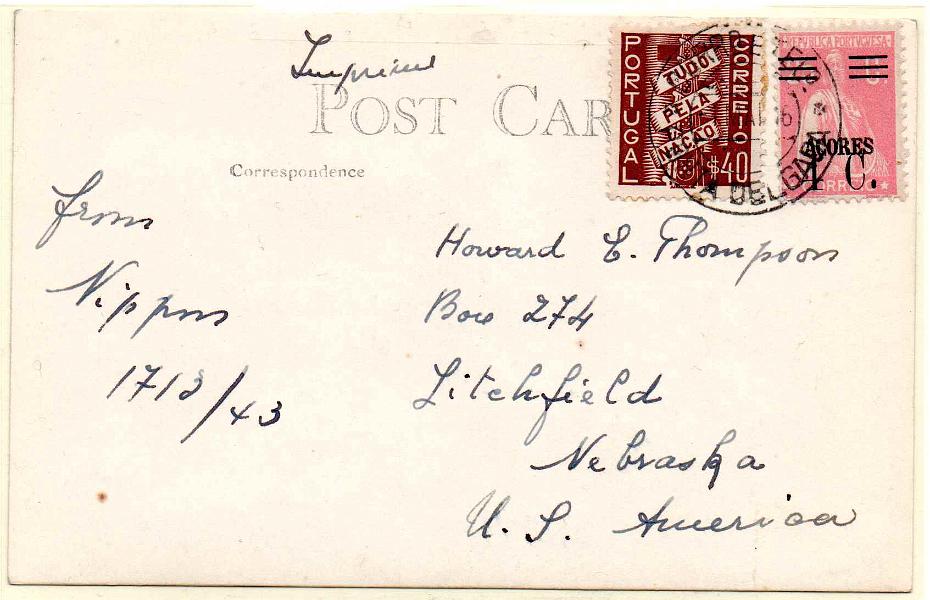 Imprime
POST CAR
Correspondence
PORTUGAL
CORREIO
TUDO
PELA
NAÇÃO
$40
REPUBLICA PORTUGUESA
AÇORES
1 C.
A DELGADA
from
Nippon
1713/43
Howard E. Thompson
Box 274
Litchfield
Nebraska
U. S. America